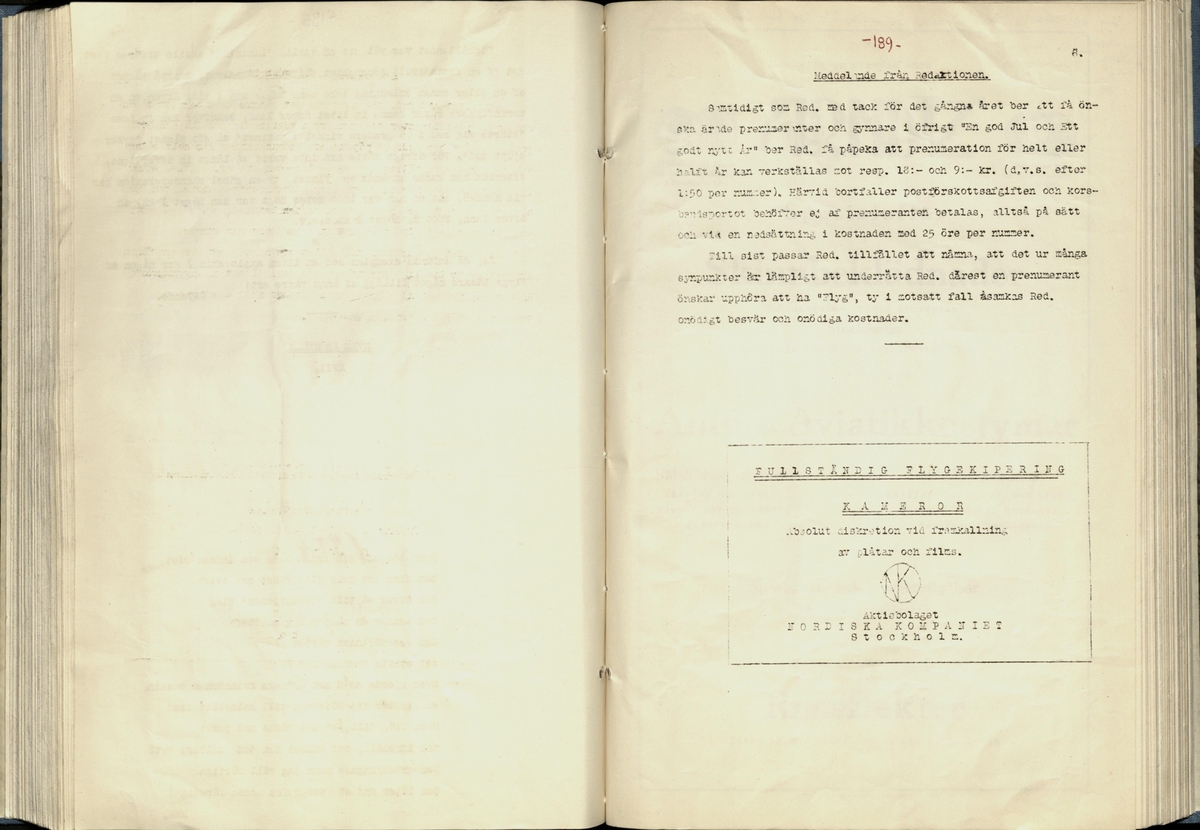 -189-
A.
Meddelande från Redaktionen.
Samtidigt som Red. med tack för det gångna året ber att få ön-
ska ärade prenumeranter och gynnare i öfrigt "En god Jul och Ett
godt nytt år" ber Red. få påpeka att prenumeration för helt eller
halft år kan verkställas mot resp. 18:- och 9:- kr. (d.v.s. efter
1:50 per nummer). Härvid bortfaller postförskottsafgiften och kors-
bandsportot behöfver ej af prenumeranten betalas, alltså på sätt
och vis en nedsättning i kostnaden med 25 öre per nummer.
Till sist passar Red. tillfället att nämna, att det ur många
synpunkter är lämpligt att underrätta Red. därest en prenumerant
önskar upphöra att ha "Flyg", ty i motsatt fall åsamkas Red.
onödigt besvär och onödiga kostnader.
FULLSTÄNDIG FLYGEKIPERING
KAMEROR
Absolut diskretion vid framkallning
av plåtar och films.
NK
Aktiebolaget
NORDISKA KOMPANIET
Stockholm.